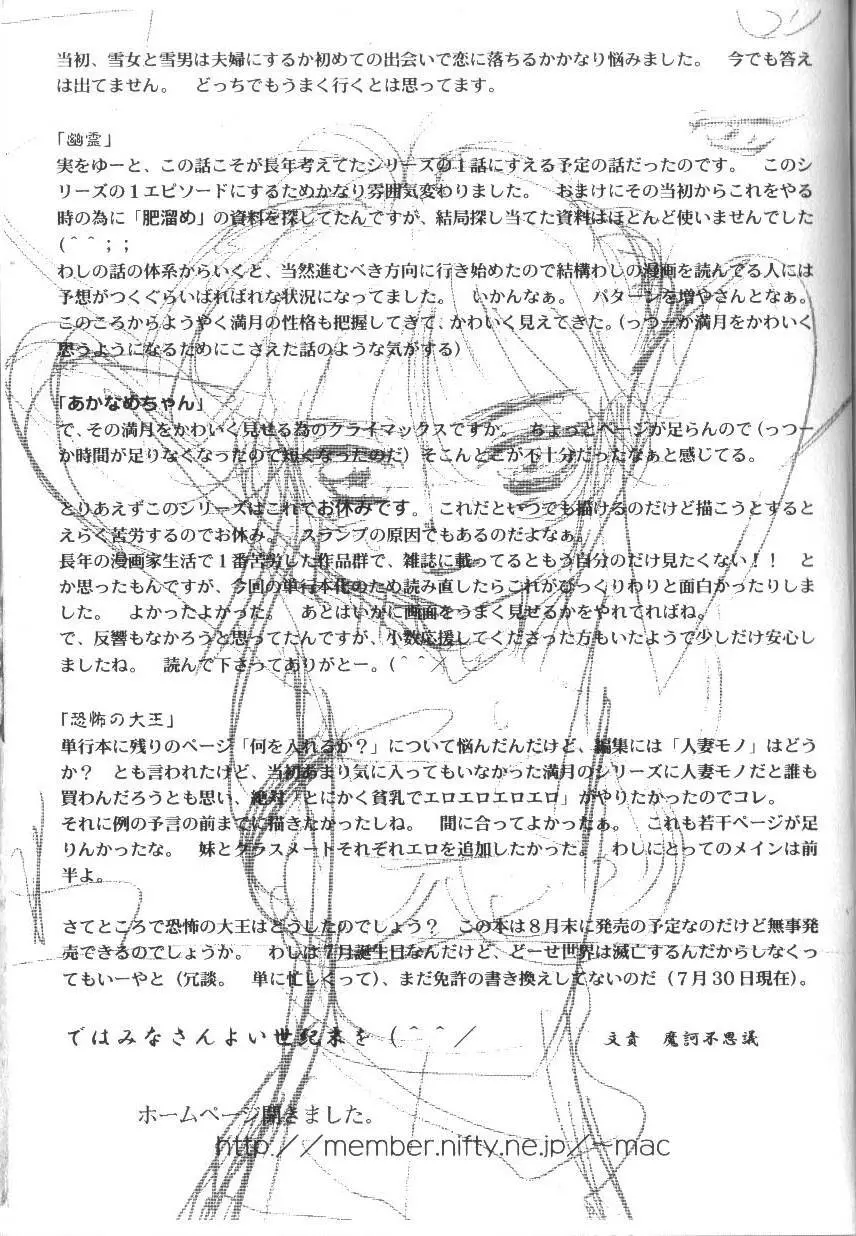 当初、雪女と雪男は夫婦にするか初めての出会いで恋に落ちるかかなり悩みました。　今でも答え
は出てません。　どっちでもうまく行くとは思ってます。
「幽霊」
実をゆーと、この話こそが長年考えてたシリーズの１話にすえる予定の話だったのです。　このシ
リーズの１エピソードにするためかなり雰囲気変わりました。　おまけにその当初からこれをやる
時の為に「肥溜め」の資料を探してたんですが、結局探し当てた資料はほとんど使いませんでした
(＾＾；；
わしの話の体系からいくと、当然進むべき方向に行き始めたので結構わしの漫画を読んでる人には
予想がつくぐらいばればれな状況になってました。　いかんなぁ。　パターンを増やさんとなぁ。
このころからようやく満月の性格も把握してきて、かわいく見えてきた。(っつーか満月をかわいく
思うようになるためにこさえた話のような気がする)
「あかなめちゃん」
で、その満月をかわいく見せる為のクライマックスですか。　ちょっとページが足らんので(っつー
か時間が足りなくなったので短くなったのだ)そこんとこが不十分だったなぁと感じてる。
とりあえずこのシリーズはこれでお休みです。　これだといつでも描けるのだけど描こうとすると
えらく苦労するのでお休み。　スランプの原因でもあるのだよなぁ。
長年の漫画家生活で１番苦労した作品群で、雑誌に載ってるともう自分のだけ見たくない！！　と
か思ったもんですが、今回の単行本化のため読み直したらこれがびっくりわりと面白かったりしま
した。　よかったよかった。　あとはいかに画面をうまく見せるかをやれてればね。
で、反響もなかろうと思ってたんですが、小数応援してくださった方もいたようで少しだけ安心し
ましたね。　読んで下さってありがとー。(＾＾／
「恐怖の大王」
単行本に残りのページ「何を入れるか？」について悩んだんだけど、編集には「人妻モノ」はどう
か？　とも言われたけど、当初あまり気に入ってもいなかった満月のシリーズに人妻モノだと誰も
買わんだろうとも思い、絶対「とにかく貧乳でエロエロエロエロ」がやりたかったのでコレ。
それに例の予言の前までに描きたかったしね。　間に合ってよかったぁ。　これも若干ページが足
りんかったな。　妹とクラスメートそれぞれエロを追加したかった。　わしにとってのメインは前
半よ。
さてところで恐怖の大王はどうしたのでしょう？　この本は８月末に発売の予定なのだけど無事発
売できるのでしょうか。　わしは７月誕生日なんだけど、どーせ世界は滅亡するんだからしなくっ
てもいーやと（冗談。　単に忙しくって）、まだ免許の書き換えしてないのだ（７月３０日現在）。
ではみなさんよい世紀末を（＾＾／　　　文責　魔訶不思議
ホームページ開きました。
http://member.nifty.ne.jp/~mac